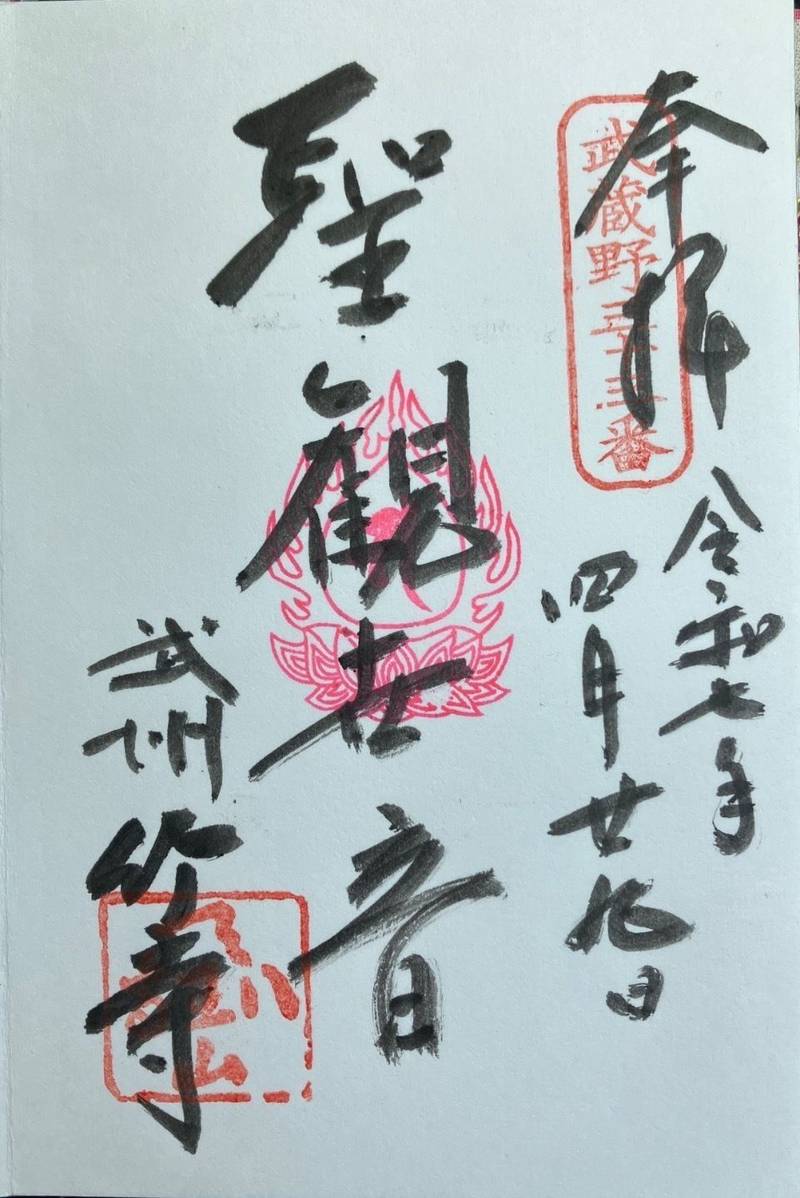 奉拝
武蔵野三十三番
令和七年
四月廿九日
聖観世音
武州
竹寺